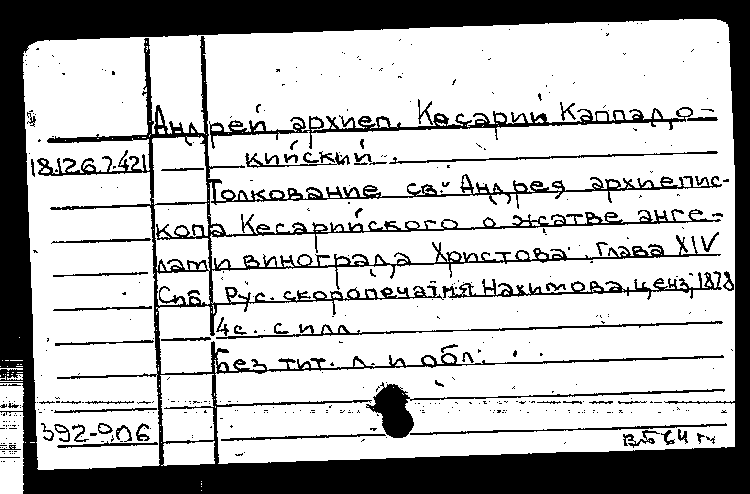 Андрей, архиеп. Кесарии Каппадо-
18.126.7.421 кийский.
Толкование св. Андрея архиепис-
копа Кесарийского о жатве анге-
лами винограда Христова. Глава XIV
Спб, Рус. скоропечатня Нахимова, ценз. 1878
4с. с илл.
Без тит. л. и обл.
392-906